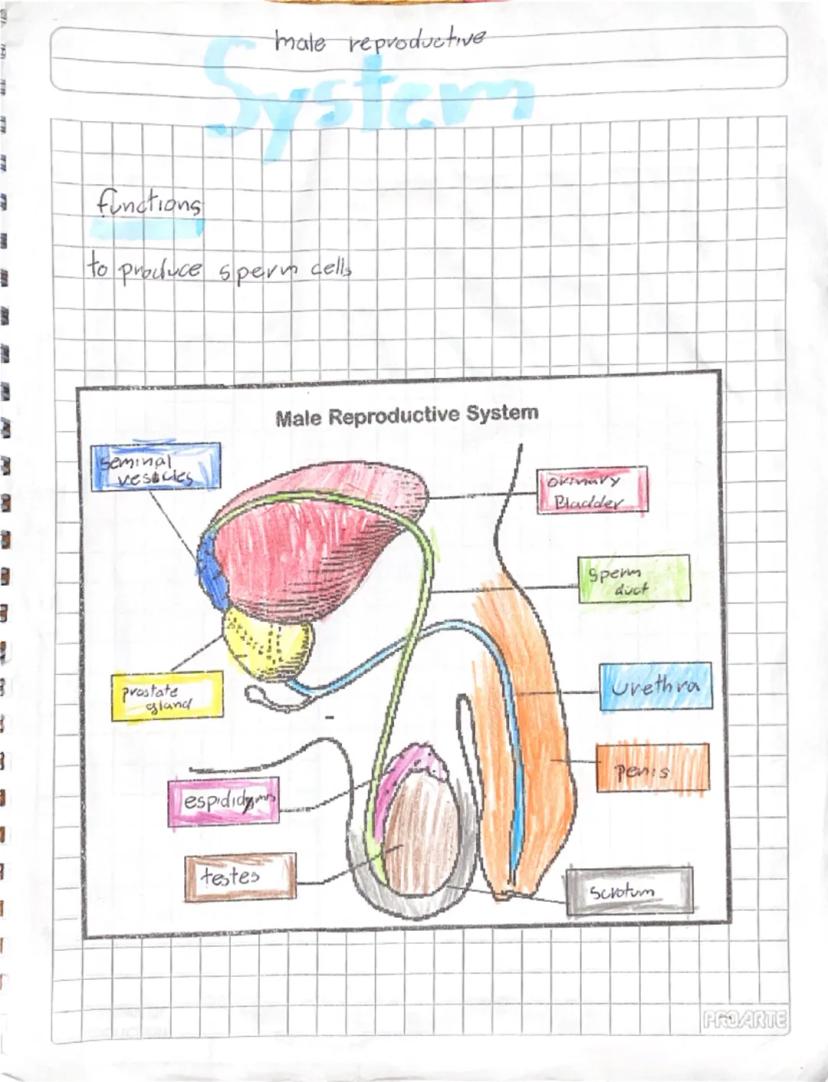 male reproductive
System
functions
to produce sperm cells
Male Reproductive System
seminal
vesicles
urinary
Bladder
sperm
duct
prostate
gland
urethra
penis
espididymis
testes
scrotum
PROARTE